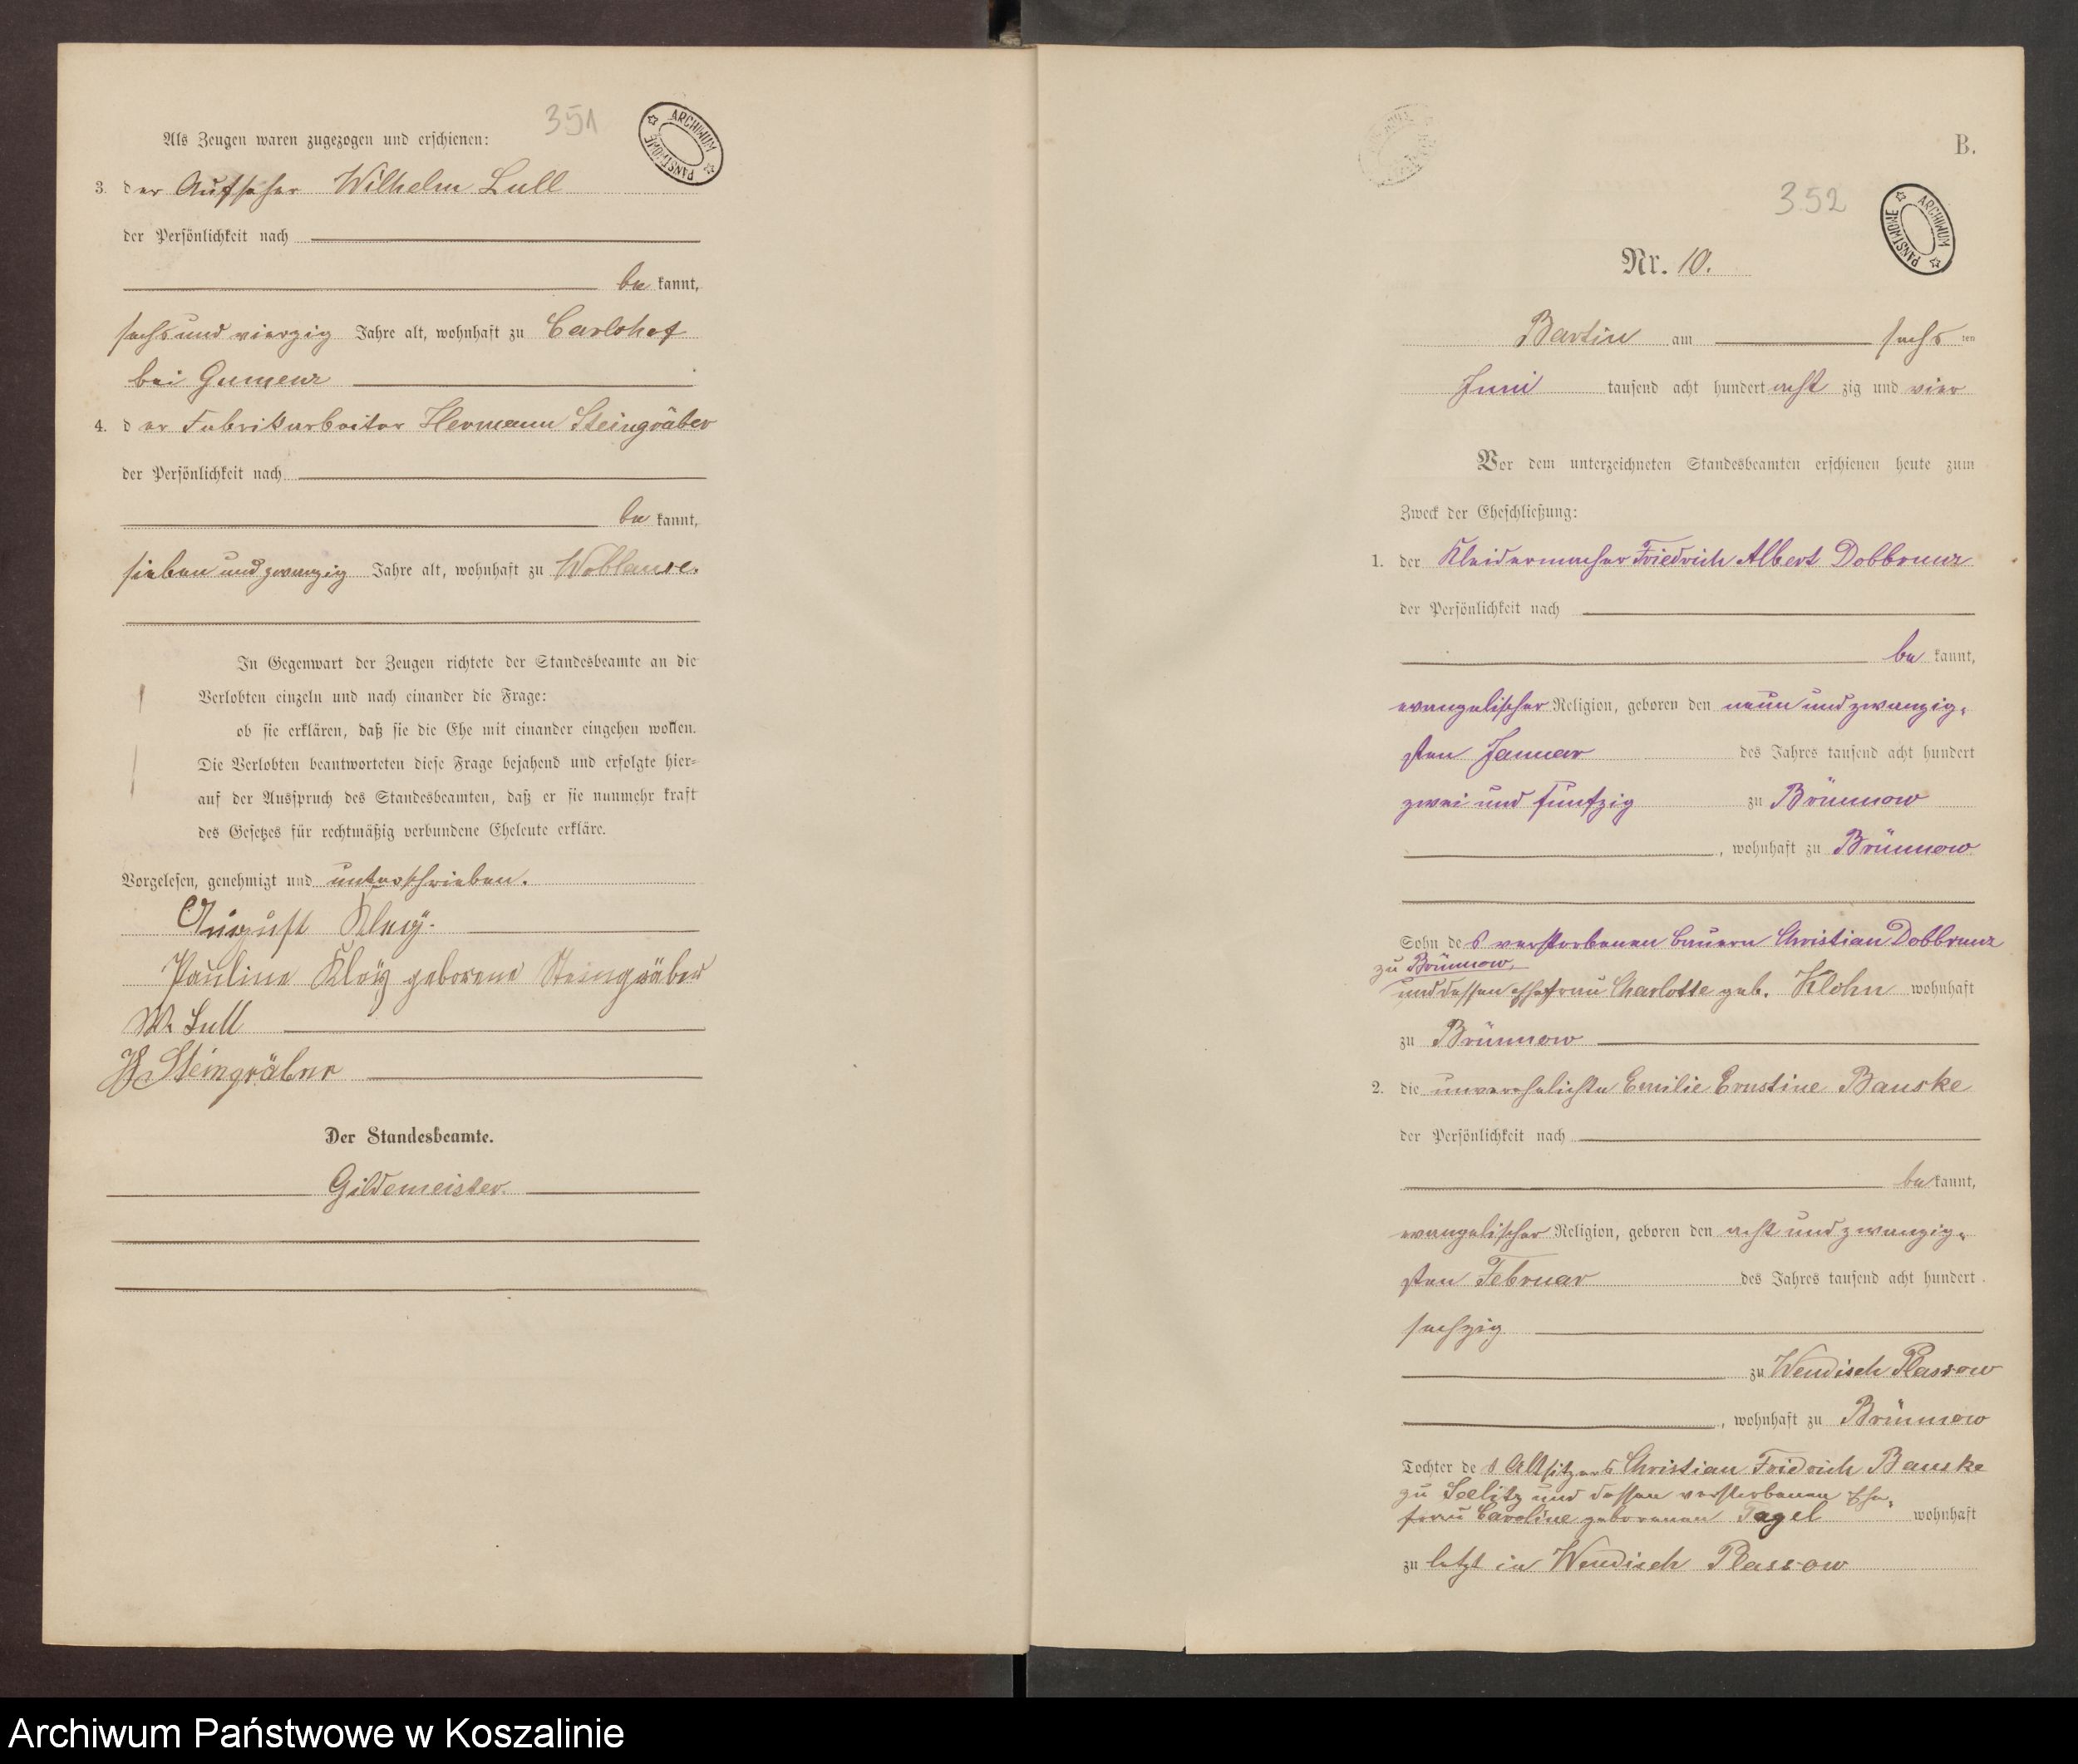 351
ARCHIWUM PAŃSTWOWE
Als Zeugen waren zugezogen und erschienen:
3. der Aufseher Wilhelm Lull
der Persönlichkeit nach
be kannt,
sechs und vierzig Jahre alt, wohnhaft zu Carlshof
bei Gumenz
4. der Fabrikarbeiter Hermann Steingräber
der Persönlichkeit nach
be kannt,
sieben und zwanzig Jahre alt, wohnhaft zu Woblanse.
In Gegenwart der Zeugen richtete der Standesbeamte an die
Verlobten einzeln und nach einander die Frage:
ob sie erklären, daß sie die Ehe mit einander eingehen wollen.
Die Verlobten beantworteten diese Frage bejahend und erfolgte hier-
auf der Ausspruch des Standesbeamten, daß er sie nunmehr kraft
des Gesetzes für rechtmäßig verbundene Eheleute erkläre.
Vorgelesen, genehmigt und unterschrieben.
August
Pauline geborene Steingräber
W. Lull
H Steingräber
Der Standesbeamte.
Gildemeister.
B.
352
ARCHIWUM PAŃSTWOWE
Nr. 10.
Bartin am sechs ten
Juni tausend acht hundert acht zig und vier
Vor dem unterzeichneten Standesbeamten erschienen heute zum
Zweck der Eheschließung:
1. der Kleidermacher Friedrich Albert Dobbrunz
der Persönlichkeit nach
be kannt,
evangelischer Religion, geboren den neun und zwanzig-
sten Januar des Jahres tausend acht hundert
zwei und fünfzig zu Brünnow
, wohnhaft zu Brünnow
Sohn des verstorbenen Bauern Christian Dobbrunz
zu Brünnow,
und dessen Ehefrau Charlotte geb. Klohn wohnhaft
zu Brünnow
2. die unverehelichte Emilie Ernstine Bauske
der Persönlichkeit nach
be kannt,
evangelischer Religion, geboren den acht und zwanzig-
sten Februar des Jahres tausend acht hundert
sechzig
zu Wendisch Plassow
, wohnhaft zu Brünnow
Tochter des Altsitzers Christian Friedrich Bauske
zu Seelitz und dessen verstorbenen Ehe-
frau Caroline geborenen Tagel wohnhaft
zu letzt in Wendisch Plassow
Archiwum Państwowe w Koszalinie